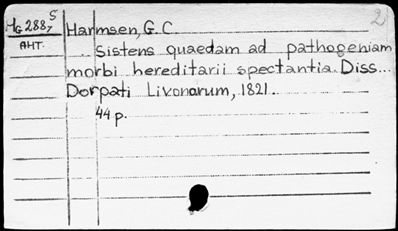 Harmsen, G. C.
Sistens quaedam ad pathogeniam
morbi hereditarii spectantia. Diss...
Dorpati Livonorum, 1821.
44 p.
АНТ.
2